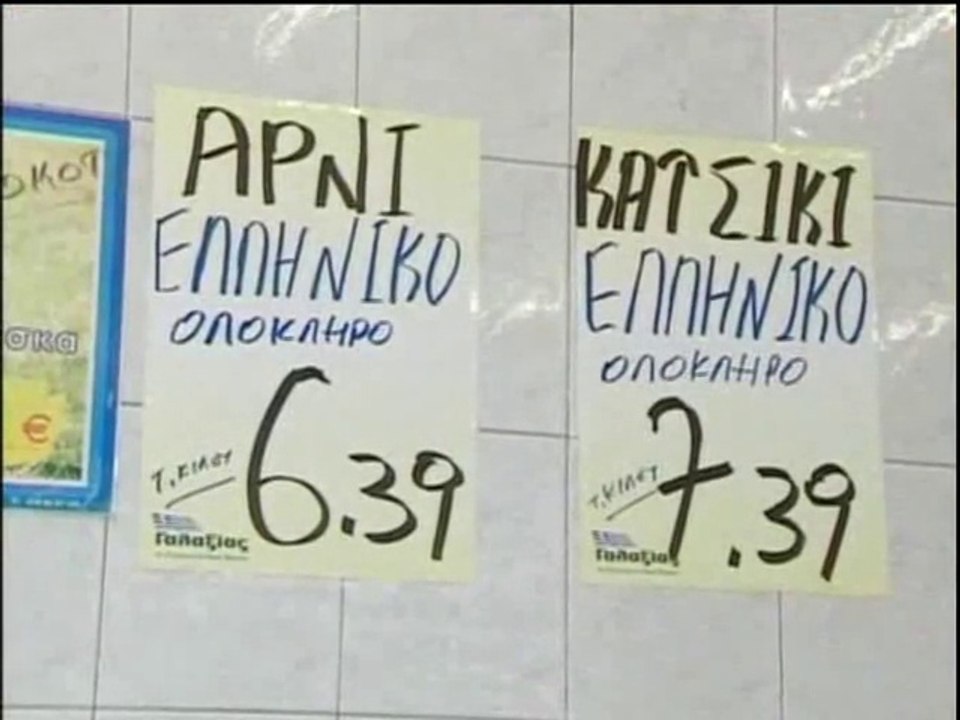 οκοτ
σκα
€
ΑΡΝΙ
ΕΛΛΗΝΙΚΟ
ΟΛΟΚΛΗΡΟ
Τ. ΚΙΛΟΥ
6.39
Γαλαξίας
ΚΑΤΣΙΚΙ
ΕΛΛΗΝΙΚΟ
ΟΛΟΚΛΗΡΟ
Τ. ΚΙΛΟΥ
7.39
Γαλαξίας